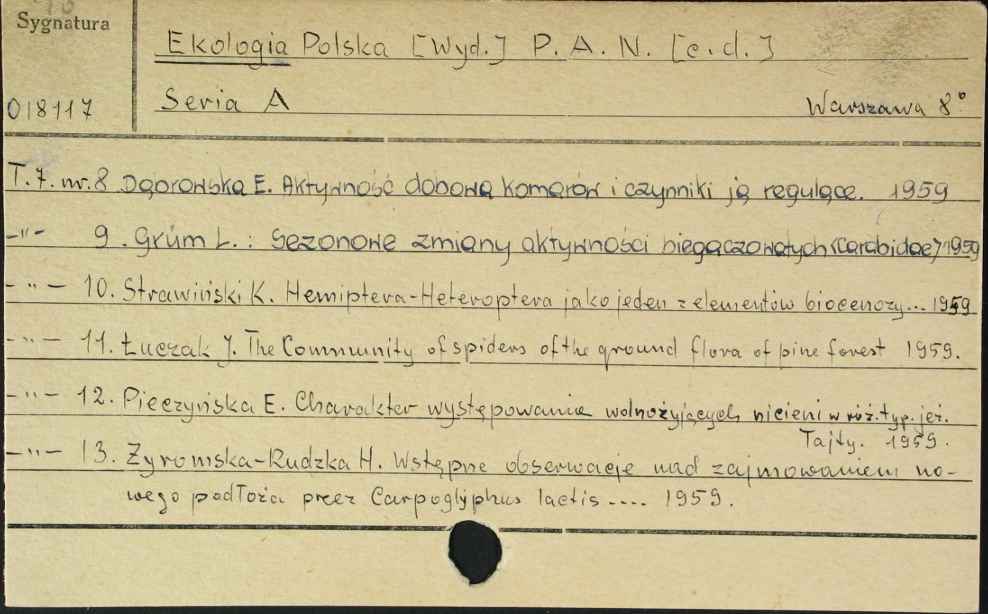 Sygnatura
018117
Ekologia Polska [Wyd.] P. A. N. [c. d.]
Seria A
Warszawa 8°
T. 7. nr. 8 Dąbrowska E. Aktywność dobowa komarów i czynniki ją regulące. 1959
-"- 9. Grüm L. : Sezonowe zmiany aktywności biegaczowatych (Carabidae) 1959
-"- 10. Strawiński K. Hemiptera-Heteroptera jako jeden z elementów biocenozy... 1959
-"- 11. Łuczak J. The Community of spiders of the ground flora of pine forest 1959.
-"- 12. Pieczyńska E. Charakter występowania wolnożyjących nicieni w róż. typ. jez.
Tajty. 1959.
-"- 13. Żyromska-Rudzka H. Wstępne obserwacje nad zajmowaniem no-
wego podłoża przez Carpoglyphus lactis .... 1959.